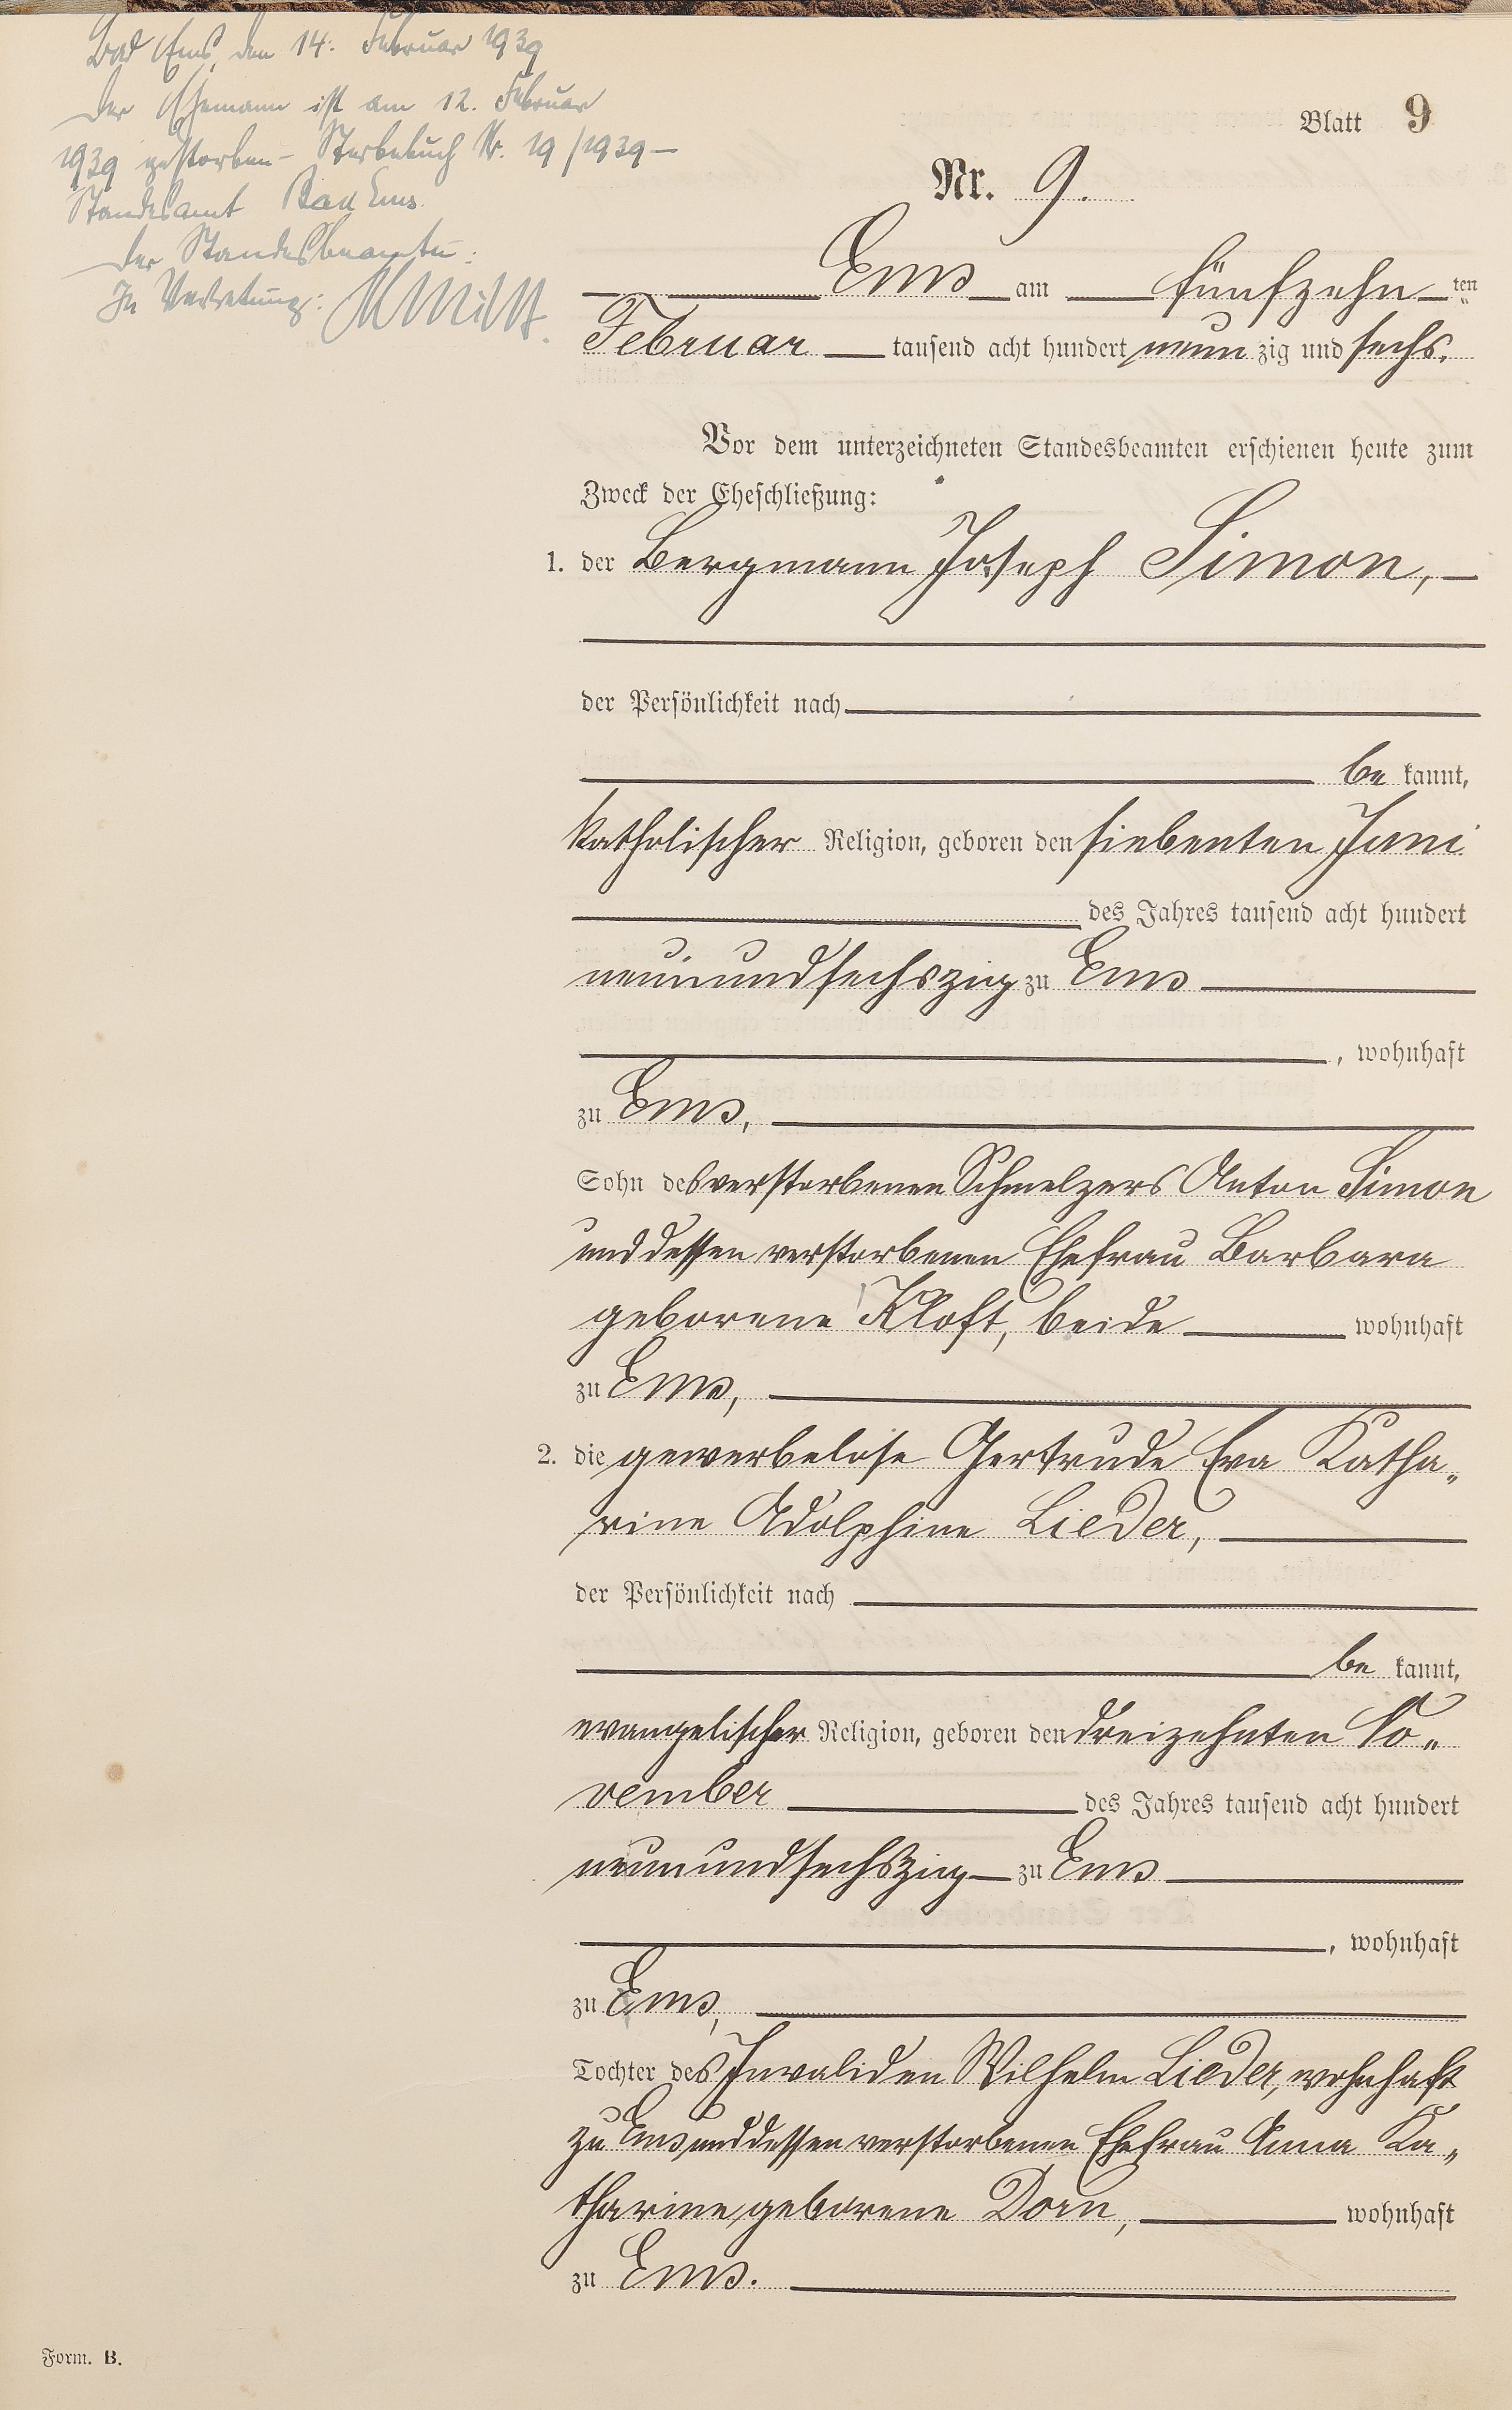 Bad Ems, den 14. Februar 1939
Der Ehemann ist am 12. Februar
1939 gestorben – Sterbebuch Nr. 19/1939 –
Standesamt Bad Ems.
Der Standesbeamte:
In Vertretung:
Blatt 9
Nr. 9.
Ems am fünfzehn ten
Februar tausend acht hundert neun zig und sechs.
Vor dem unterzeichneten Standesbeamten erschienen heute zum
Zweck der Eheschließung:
1. der Bergmann Joseph Simon,
der Persönlichkeit nach
be kannt,
katholischer Religion, geboren den siebenten Juni
des Jahres tausend acht hundert
neunundsechszig zu Ems
, wohnhaft
zu Ems,
Sohn des verstorbenen Schmelzers Anton Simon
und dessen verstorbenen Ehefrau Barbara
geborene Kloft, beide wohnhaft
zu Ems,
2. die gewerbelose Gertrude Eva Katha„
rine Adolphine Lieder,
der Persönlichkeit nach
be kannt,
evangelischer Religion, geboren den dreizehnten No„
vember des Jahres tausend acht hundert
neunundsechszig zu Ems
, wohnhaft
zu Ems,
Tochter des Invaliden Wilhelm Lieder, wohnhaft
zu Ems und dessen verstorbenen Ehefrau Anna Ka„
tharine geborene Dorn, wohnhaft
zu Ems.
Form. B.